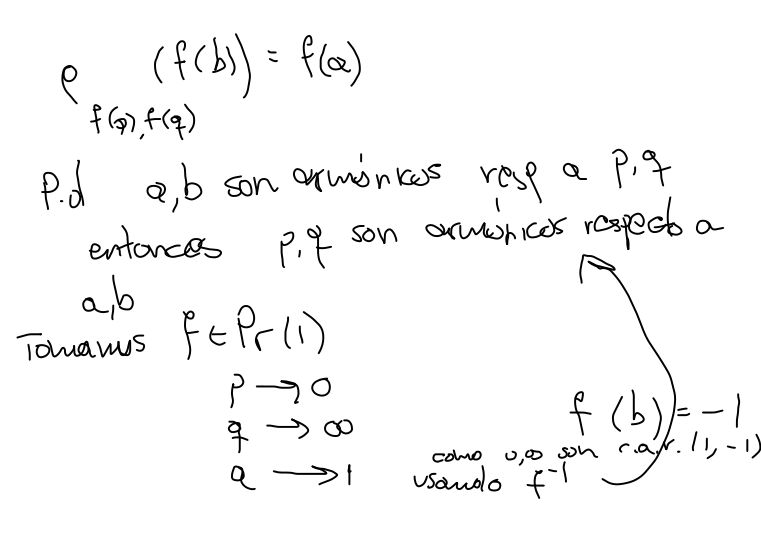 ρ (f(b)) = f(a)
f(p), f(q)
P.d a,b son armónicos resp a p,q
entonces p,q son armónicos respecto a
a,b
Tomamos f ∈ Pr(1)
p → 0
q → ∞ f (b) = -1
como 0,∞ son r.a.r. (1,-1)
a → 1 usando f⁻¹